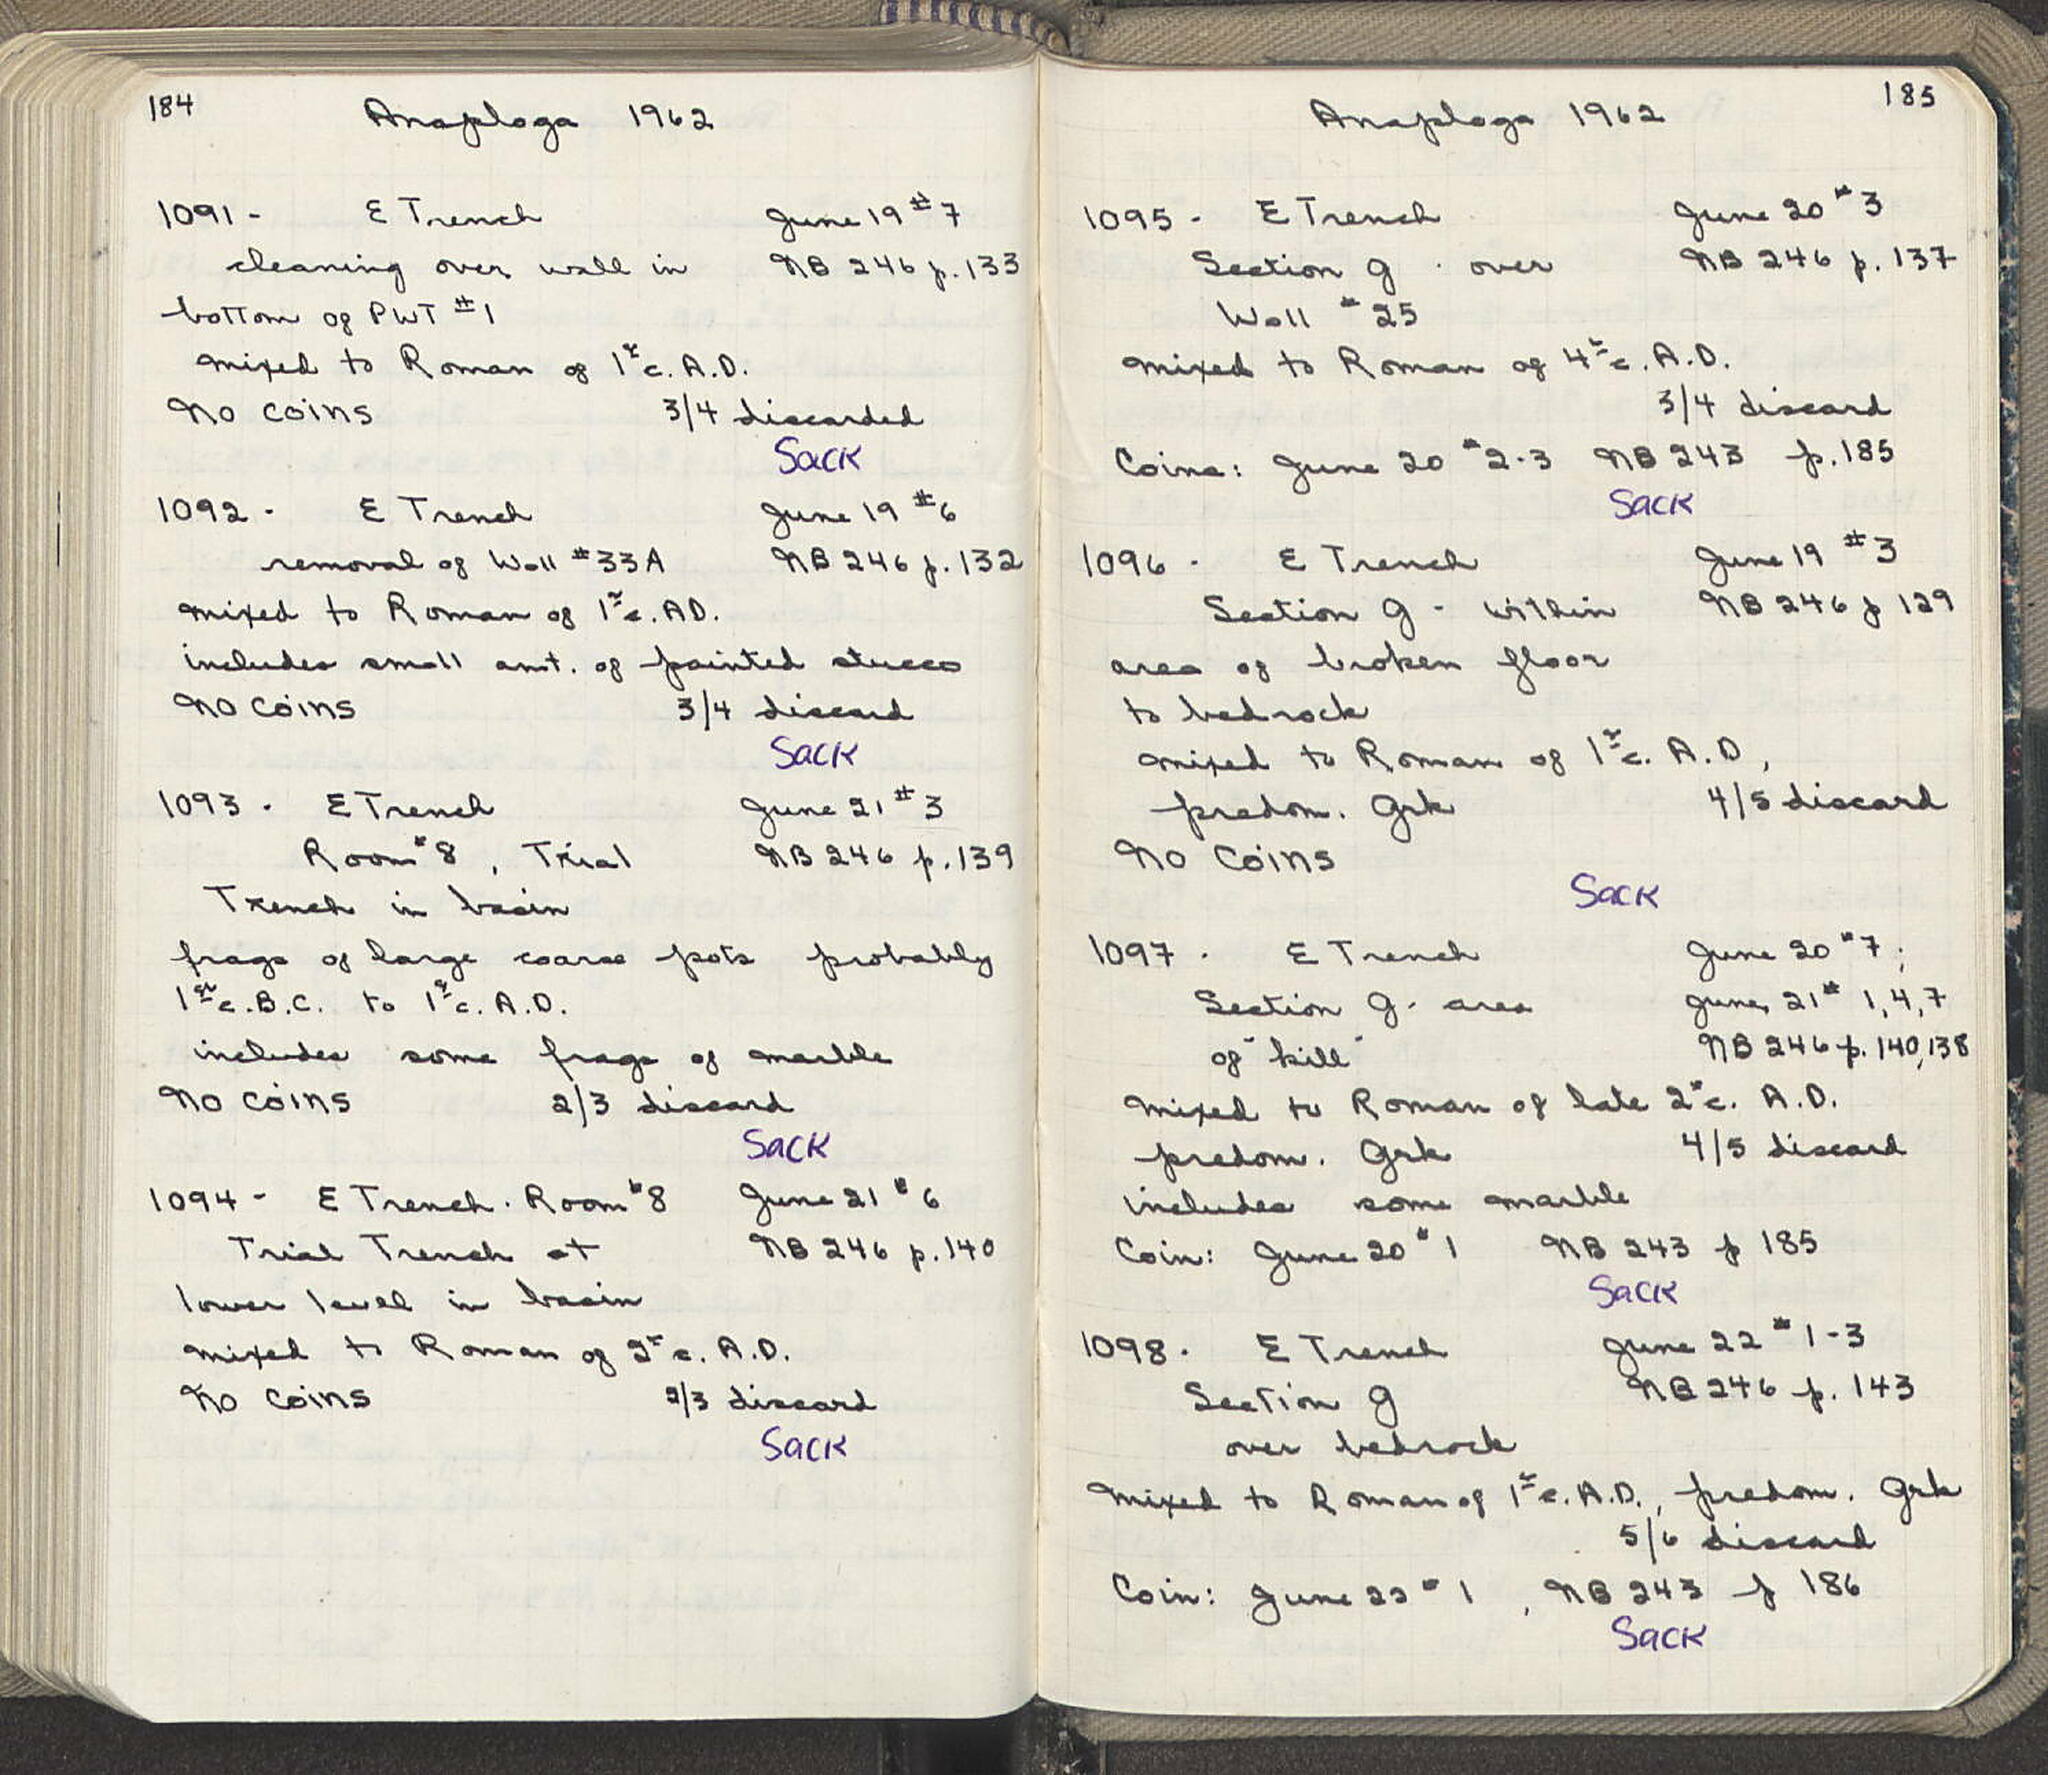 184
Anaploga 1962
1091 - E Trench June 19 #7
cleaning over wall in NB 246 p. 133
bottom of PWT #1
mixed to Roman of 1st c. A.D.
No coins 3/4 discarded
Sack
1092 - E Trench June 19 #6
removal of Wall #33A NB 246 p. 132
mixed to Roman of 1st c. A.D.
includes small amt. of painted stucco
No coins 3/4 discard
Sack
1093 - E Trench June 21 #3
Room #8, Trial NB 246 p. 139
Trench in basin
frags of large coarse pots probably
1st c. B.C. to 1st c. A.D.
includes some frags of marble
No coins 2/3 discard
Sack
1094 - E Trench. Room #8 June 21 #6
Trial Trench at NB 246 p. 140
lower level in basin
mixed to Roman of 2nd c. A.D.
No coins 2/3 discard
Sack
185
Anaploga 1962
1095 - E Trench June 20 #3
Section G - over NB 246 p. 137
Wall #25
mixed to Roman of 4th c. A.D.
3/4 discard
Coins: June 20 #2-3 NB 243 p. 185
Sack
1096 - E Trench June 19 #3
Section G - within NB 246 p 129
area of broken floor
to bedrock
mixed to Roman of 1st c. A.D,
predom. Grk 4/5 discard
No coins
Sack
1097 - E Trench June 20 #7;
Section G - area June 21 # 1, 4, 7
of "hill" NB 246 p. 140, 138
mixed to Roman of late 2nd c. A.D.
predom. Grk 4/5 discard
includes some marble
Coin: June 20 #1 NB 243 p 185
Sack
1098 - E Trench June 22 #1-3
Section G NB 246 p. 143
over bedrock
mixed to Roman of 1st c. A.D., predom. Grk
5/6 discard
Coin: June 22 #1, NB 243 p 186
Sack